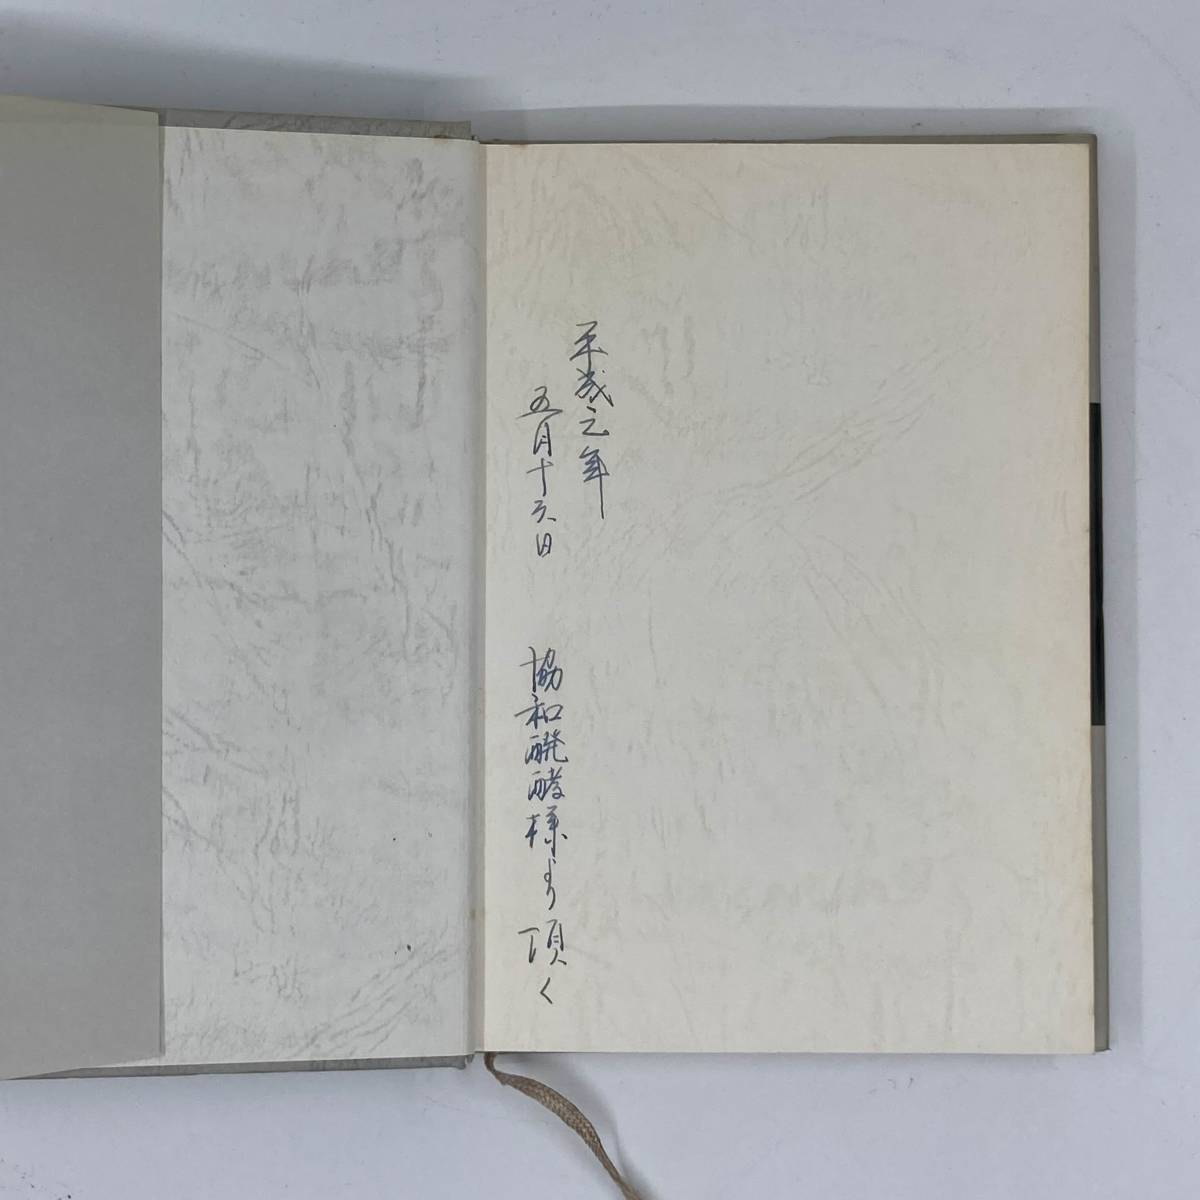 平成元年
五月十六日
協和醗酵様より頂く